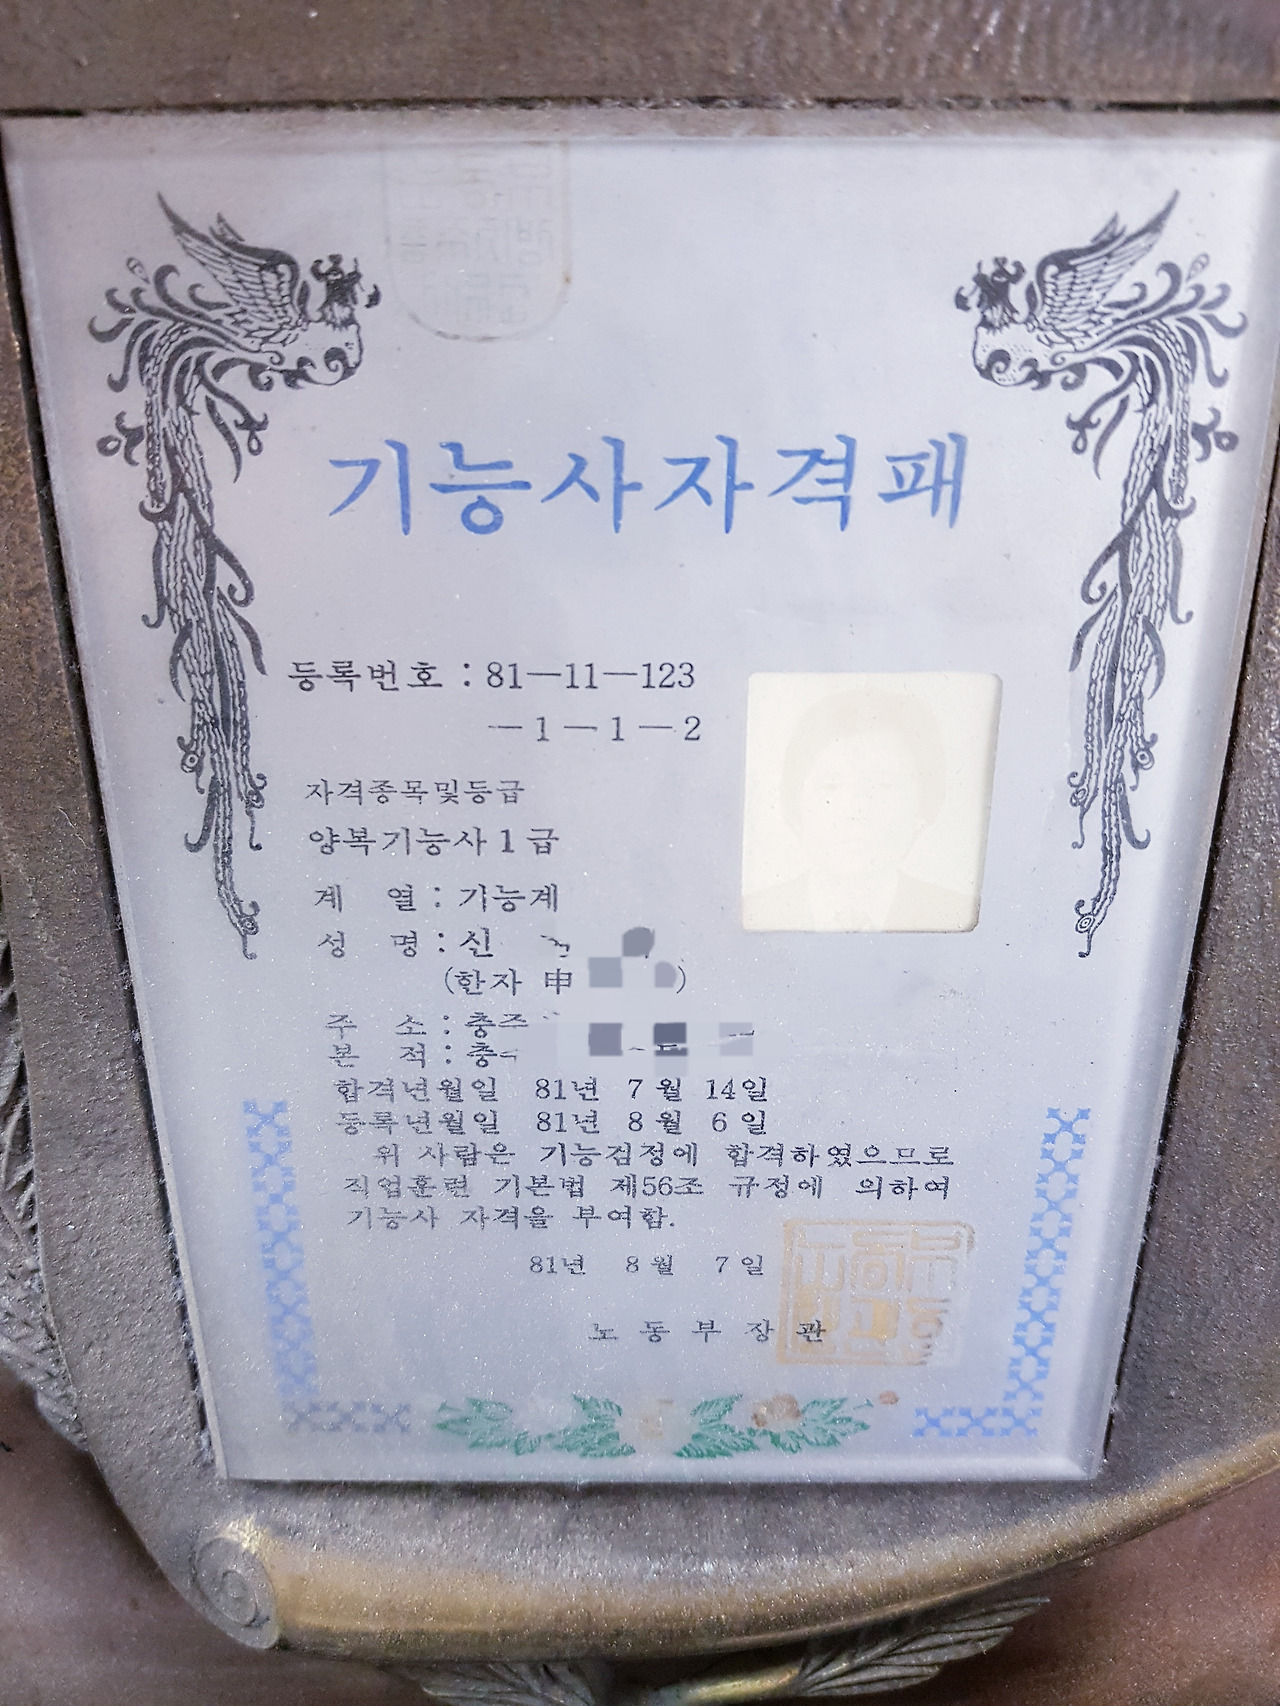 기능사자격패
등록번호 : 81—11—123
—1—1—2
자격종목및등급
양복기능사 1 급
계 열 : 기능계
성 명 : 신
(한자 申 )
주 소 : 충주
본 적 : 충
합격년월일 81년 7월 14일
등록년월일 81년 8월 6일
위 사람은 기능검정에 합격하였으므로
직업훈련 기본법 제56조 규정에 의하여
기능사 자격을 부여함.
81년 8월 7일
노동부장관